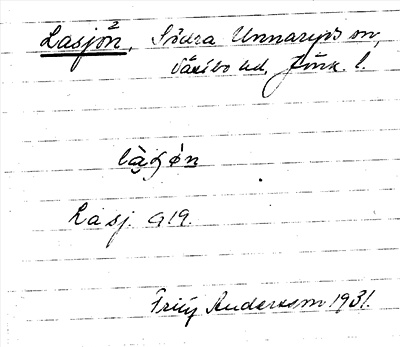 Lasjön, Södra Unnaryds sn,
Västbo hd, Jönk. l.
làʂɧ ø̀n
Lasj. G19.
Fritz Andersson 1931.